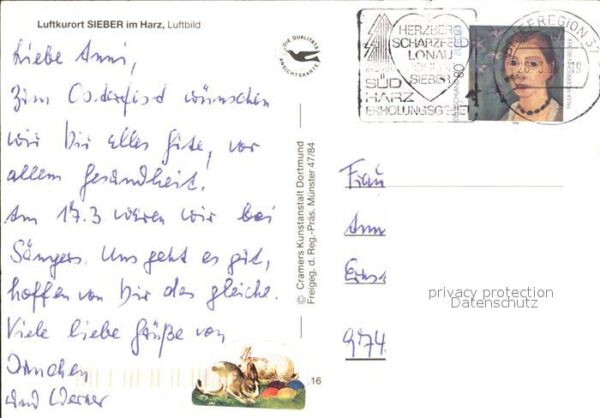 Luftkurort SIEBER im Harz, Luftbild
Liebe Anni,
Zum Osterfest wünschen
wir Dir alles Gute, vor
allem Gesundheit!
Am 17.3 waren wir bei
Sängers. Uns geht es gut,
hoffen von Dir das gleiche.
Viele liebe Grüße von
Ännchen
und Werner
DIE QUALITÄTS
ANSICHTSKARTE
© Cramers Kunstanstalt Dortmund
Freigeg. d. Reg.-Präs. Münster 47/84
.16
HERZBERG
SCHARZFELD
LONAU
SIEBER
SÜD
HARZ
ERHOLUNGSGEBIET
BRIEFREGION 37
80
Frau
Ann
privacy protection
Datenschutz